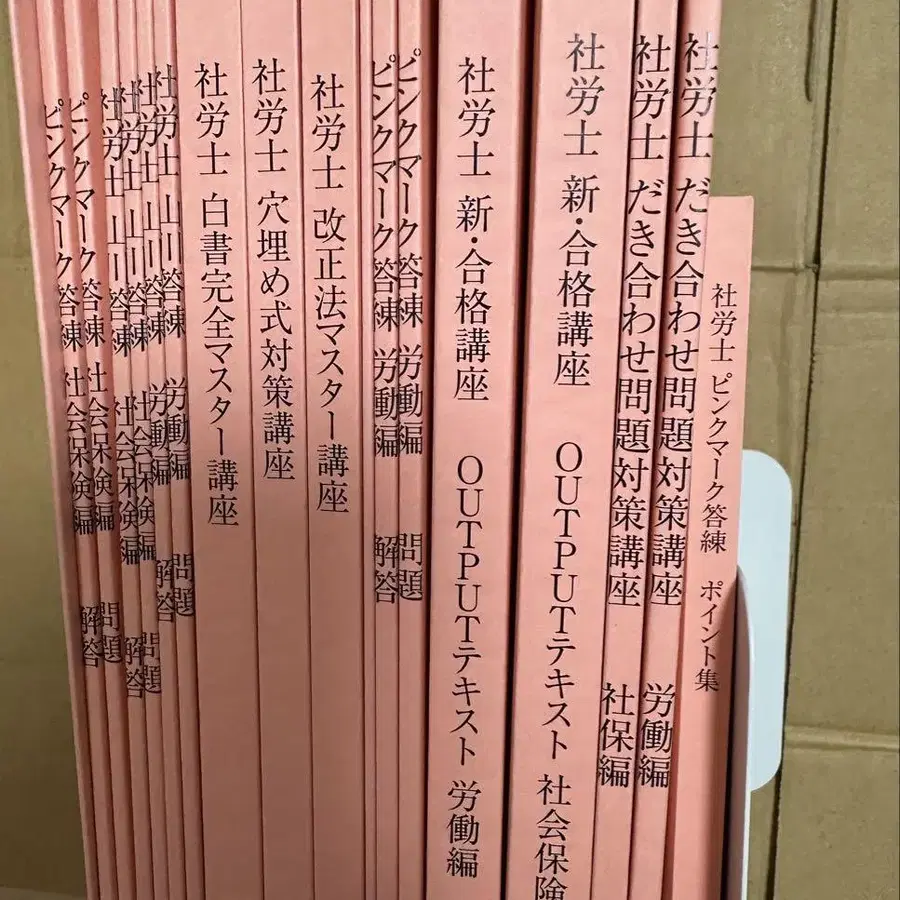 ピンクマーク答練 社会保険編 解答
ピンクマーク答練 社会保険編 問題
社労士 答練 社会保険編 解答
社労士 答練 社会保険編 問題
社労士 答練 労働編 解答
社労士 答練 労働編 問題
社労士 白書完全マスター講座
社労士 穴埋め式対策講座
社労士 改正法マスター講座
ピンクマーク答練 労働編 解答
ピンクマーク答練 労働編 問題
社労士 新・合格講座 OUTPUTテキスト 労働編
社労士 新・合格講座 OUTPUTテキスト 社会保険
社労士 だき合わせ問題対策講座 社保編
社労士 だき合わせ問題対策講座 労働編
社労士 ピンクマーク答練 ポイント集